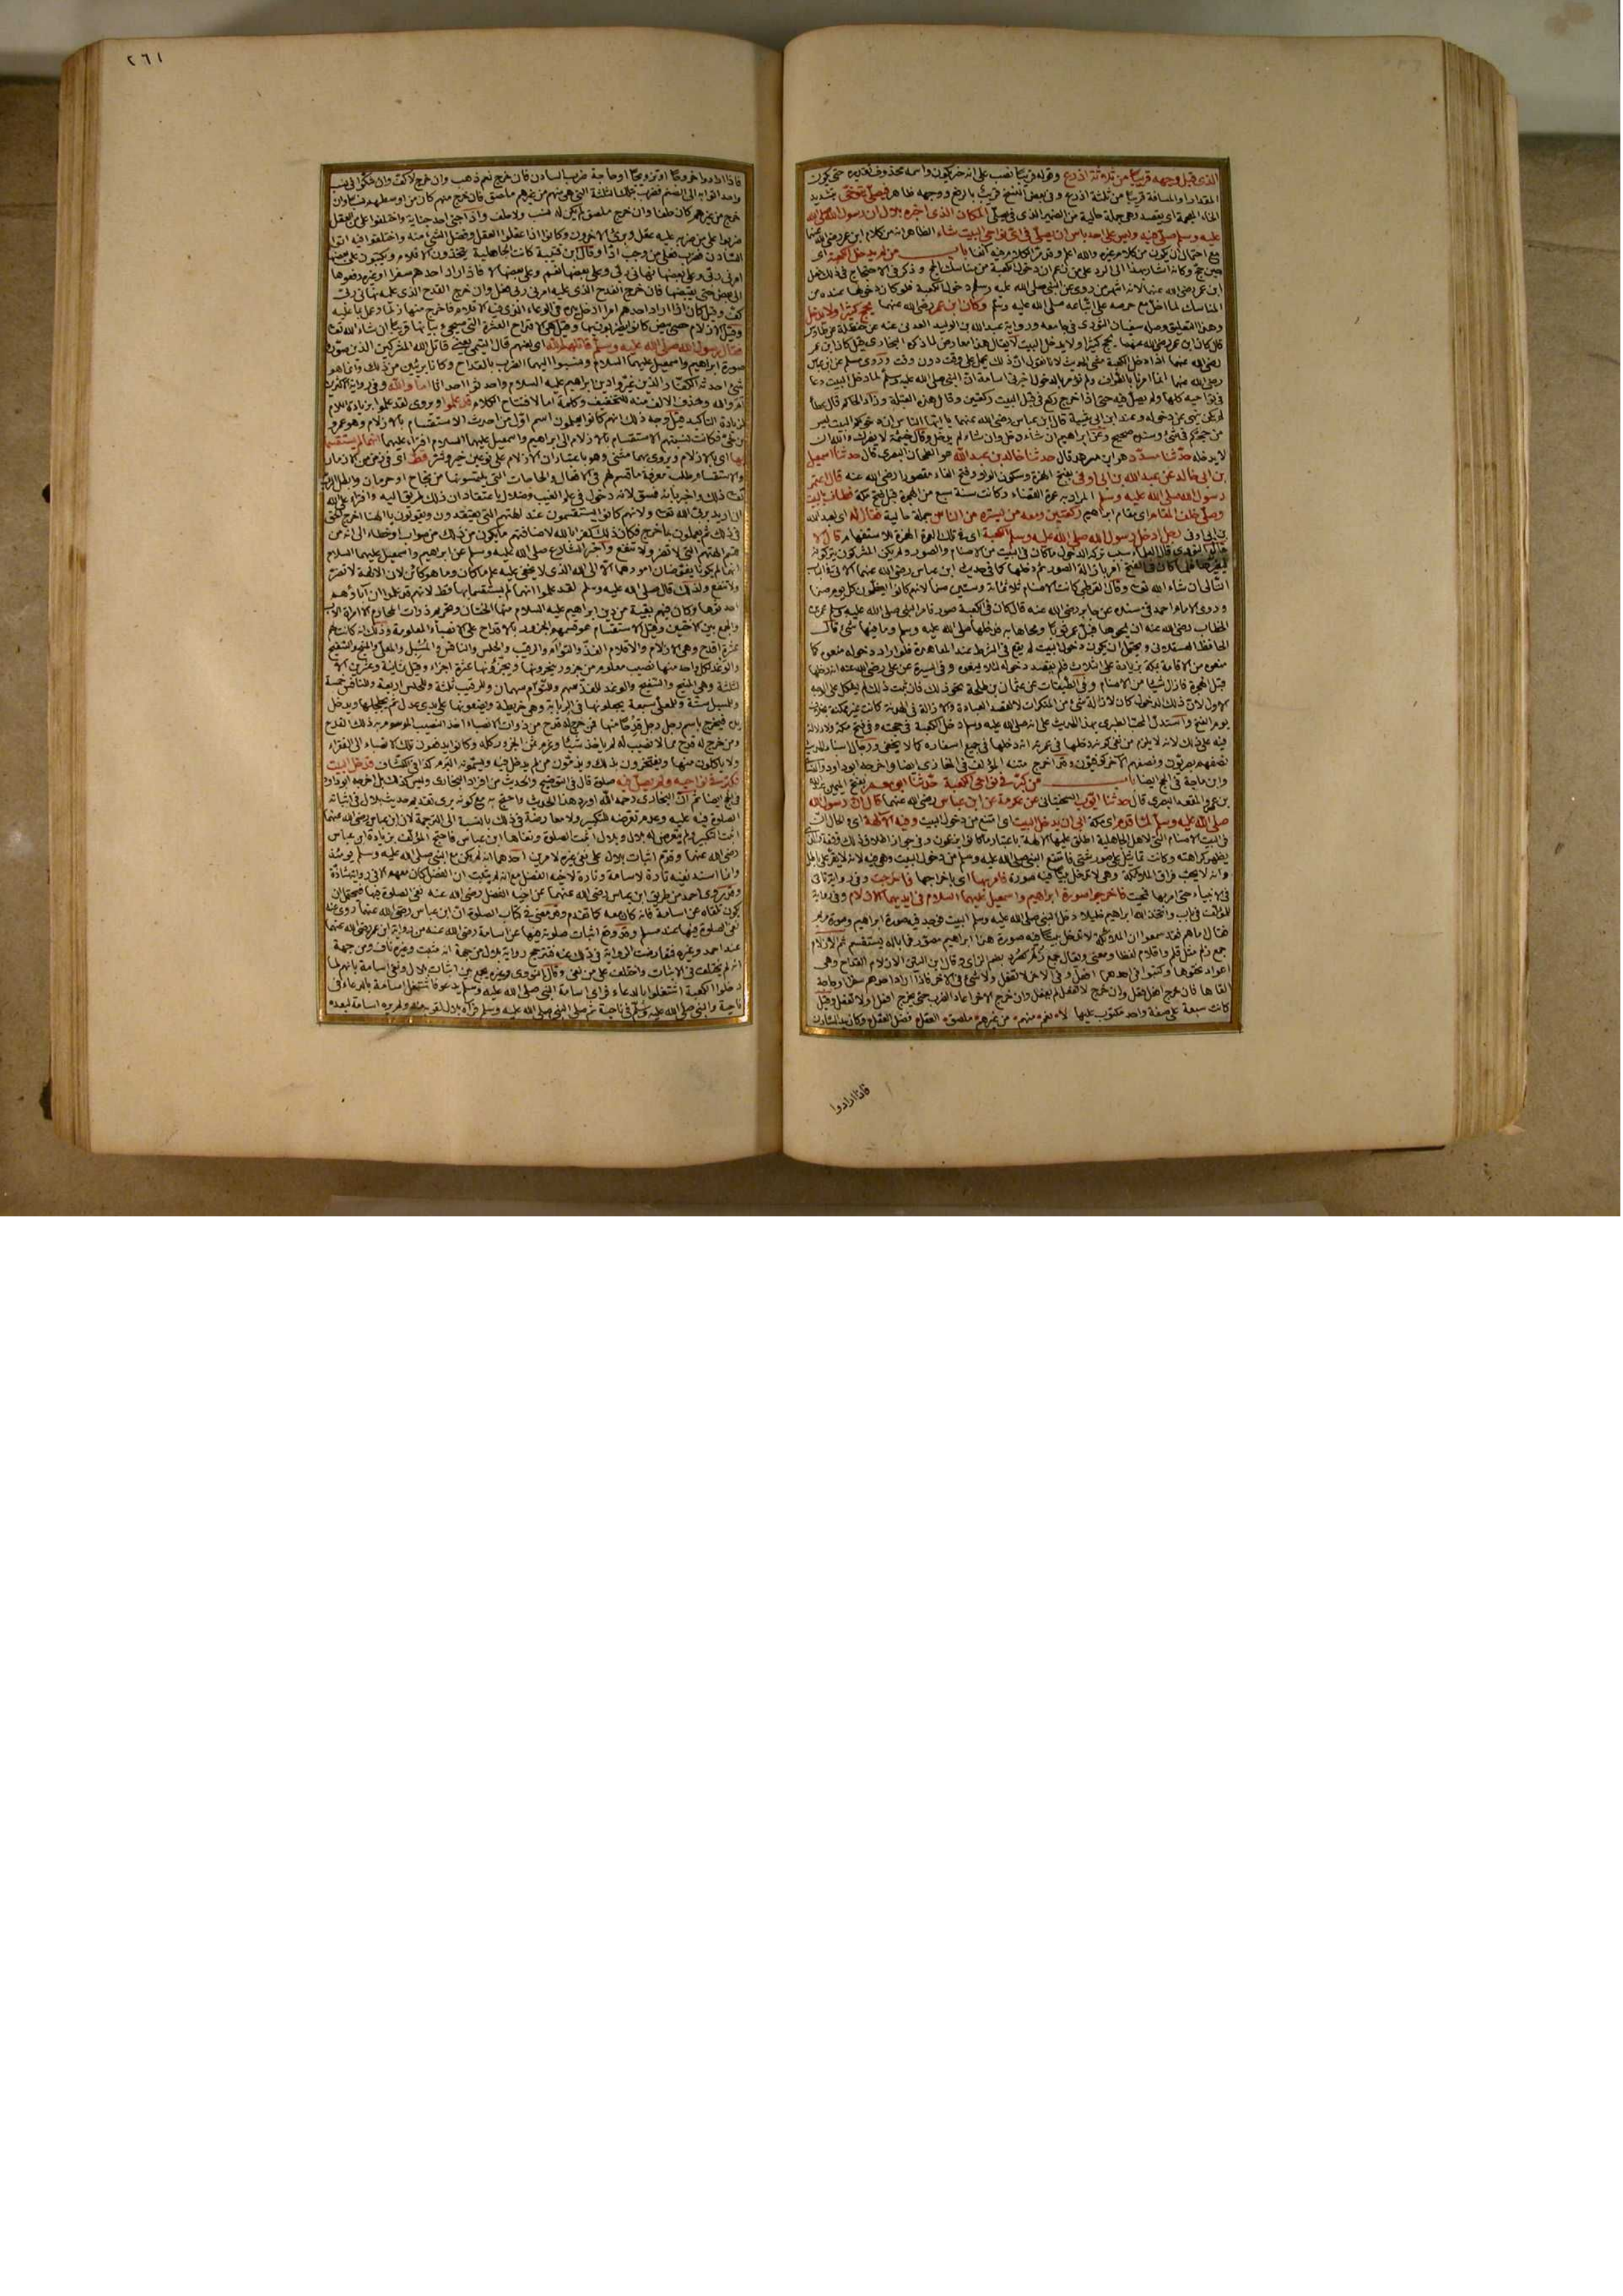 الذى قبل وجهه قريبا من ثلاثة اذرع وقوله قريبا نصب على انه خبر يكون واسمه محذوف تقديره حتى يكون
المقدار او المسافة قريبا من ثلثة اذرع وفى بعض النسخ قريب بالرفع ووجهه ظاهر فيصلى يتوخى بتشديد
الخاء المعجمة اى يقصد وهى جملة حالية من الضمير الذى فى يصلى المكان الذى اخبره بلال ان رسول الله صلى الله
عليه وسلم صلى فيه وليس على احد باس ان يصلى فى اى نواحى البيت شاء الظاهر انه من كلام ابن عمر رضى الله عنهما
مع احتمال ان يكون من كلام غيره والله اعلم وقد مر الكلام فيه آنفا باب من لم يدخل الكعبة اى
حين حج وكانه اشار بهذا الى الرد على من زعم ان دخول الكعبة من مناسك الحج وذكر فى الاحتجاج فى ذلك فعل
ابن عمر رضى الله عنهما لانه اشهر من روى عن النبى صلى الله عليه وسلم دخول الكعبة فلو كان دخولها عنده من
المناسك لما اخل مع حرصه على اتباعه صلى الله عليه وسلم وكان ابن عمر رضى الله عنهما يحج كثيرا ولا يدخل
وهذا التعليق وصله سفيان الثورى فى جامعه ورواية عبد الله بن الوليد العدنى عنه عن حنظلة عن طاوس
قال كان ابن عمر رضى الله عنهما يحج كثيرا ولا يدخل البيت لا يقال هذا معارض لما ذكره البخارى قبل كان ابن عمر
رضى الله عنهما اذا دخل الكعبة مشى الحديث لانا نقول ان ذلك يحمل على وقت دون وقت وروى مسلم عن ابن عباس
رضى الله عنهما انما امرنا بالطواف ولم نؤمر بالدخول اخبرنى اسامة ان النبى صلى الله عليه وسلم لما دخل البيت دعا
فى نواحيه كلها ولم يصل فيه حتى اذا خرج ركع فى قبل البيت ركعتين وقال هذه القبلة وزاد الحاكم قال عطاء
لم يكن ينهى عن دخوله وعند ابن ابى شيبة قال ابن عباس رضى الله عنهما يا ايها الناس ان دخولكم البيت ليس
من حجكم فى شئ وسنده صحيح وعن ابراهيم ان شاء دخل وان شاء لم يدخل وقال خيثمة لا يضرك والله ان
لا يدخله حدثنا مسدد هو ابن مسرهد قال حدثنا خالد بن عبد الله هو الطحان البصرى قال حدثنا اسمعيل
بن ابى خالد عن عبد الله بن ابى اوفى بفتح الهمزة وسكون الواو وفتح الفاء مقصورا رضى الله عنه قال اعتمر
رسول الله صلى الله عليه وسلم المراد به عمرة القضاء وكانت سنة سبع من الهجرة قبل فتح مكة فطاف بالبيت
وصلى خلف المقام اى مقام ابراهيم ركعتين ومعه من يستره من الناس جملة حالية فقال له اى لعبد الله
بن ابى اوفى رجل ادخل رسول الله صلى الله عليه وسلم الكعبة اى فى تلك العمرة الهمزة للاستفهام قال لا
قال النووى قال العلماء سبب تركه الدخول ما كان فى البيت من الاصنام والصور ولم يكن المشركون يتركونه
ليغيرها فلما كان فى الفتح امر بازالة الصور ثم دخلها كما فى حديث ابن عباس رضى الله عنهما الاتى فى الباب
التالى ان شاء الله تعالى وقال القرطبى كانت الاصنام ثلاثمائة وستين صنما لانهم كانوا يعظمون كل يوم صنما
وروى الامام احمد فى مسنده عن جابر رضى الله عنه قال كان فى الكعبة صور فامر النبى صلى الله عليه وسلم عمر بن
الخطاب رضى الله عنه ان يمحوها فبل عمر ثوبا ومحاها به فدخلها صلى الله عليه وسلم وما فيها شئ قال
الحافظ العسقلانى ويحتمل ان يكون دخول البيت لم يقع فى الشرط عند المعاهدة فلو اراد دخوله منعوه كما
منعوه من الاقامة بمكة زيادة على الثلاث فلم يقصد دخوله لئلا يمنعوه وفى السيرة عن على رضى الله عنه انه دخلها
قبل الهجرة فازال شيئا من الاصنام وفى الطبقات عن عثمان بن طلحة نحو ذلك فان ثبت ذلك لم يشكل على الوجه
الاول لان ذلك الدخول كان لازالة شئ من المنكرات لا لقصد العبادة والازالة فى الهدنة كانت غير ممكنة بخلاف
يوم الفتح واستدل المحب الطبرى بهذا الحديث على انه صلى الله عليه وسلم دخل الكعبة فى حجته وفى فتح مكة ولا دلالة
فيه على ذلك لانه لا يلزم من نفى كونه دخلها فى عمرته انه دخلها فى جميع اسفاره كما لا يخفى ورجال اسناد الحديث
نصفهم بصريون ونصفهم الاخر كوفيون وقد اخرج متنه المؤلف فى المغازى ايضا واخرجه ابو داود والنسائى
وابن ماجة فى الحج ايضا باب من كبر فى نواحى الكعبة حدثنا ابو معمر بفتح الميمين عبد الله
بن عمرو المقعد البصرى قال حدثنا ايوب السختيانى عن عكرمة عن ابن عباس رضى الله عنهما قال ان رسول الله
صلى الله عليه وسلم لما قدم اى مكة ابى ان يدخل البيت اى امتنع من دخول البيت وفيه الآلهة اى والحال ان
فى البيت الاصنام التى لاهل الجاهلية اطلق عليها الآلهة باعتبار ما كانوا يزعمون وفى جواز اطلاق ذلك وقفة
يظهر كراهته وكانت تماثيل على صور شتى فامتنع النبى صلى الله عليه وسلم من دخول البيت وهى فيه لانه لا يقر على باطل
وانه لا يحب فراق الملائكة وهى لا تدخل بيتا فيه صورة فامر بها اى باخراجها فاخرجت وفى رواية تاتى
فى الانبياء حتى امر بها فمحيت فاخرجوا صورة ابراهيم واسمعيل عليهما السلام فى ايديهما الازلام وفى رواية
للمؤلف فى باب واتخذ الله ابراهيم خليلا دخل النبى صلى الله عليه وسلم البيت فوجد فيه صورة ابراهيم وصورة مريم
فقال اما هم فقد سمعوا ان الملائكة لا تدخل بيتا فيه صورة هذا ابراهيم مصور فما باله يستقسم ثم الازلام
جمع زلم مثل قلم واقلام لفظا ومعنى ويقال جمع زلم كصرد بضم الزاى وقال ابن التين الازلام القداح وهى
اعواد نحتوها وكتبوا فى احدهما افعل وفى الاخر لا تفعل ولا شئ فى الآخر فاذا اراد احدهم سفرا او حاجة
القاها فان خرج افعل فعل وان خرج لا تفعل لم يفعل وان خرج الاخر اعاد الضرب حتى يخرج افعل او لا تفعل وقيل
كانت سبعة على صفة واحد مكتوب عليها لا نعم منهم من غيرهم ملصق العقل فضل العقل وكان بيد السادن
فاذا ارادوا
٢٦١
فاذا ارادوا خروجا او تزويجا او حاجة ضرب السادن فان خرج نعم ذهب وان خرج لا كف وان شكوا فى نسب
واحد اتوا به الى الصنم فضرب بتلك الثلثة التى هى منهم من غيرهم ملصق فان خرج منهم كان من اوسطهم نسبا وان
خرج من غيرهم كان حلفا وان خرج ملصق لم يكن له نسب ولا حلف واذا جنى احد جناية واختلفوا على من العقل
ضربوا على من ضرب عليه عقل وبرئ الاخرون وكانوا اذا عقلوا العقل وفضل الشئ منه واختلفوا فيه اتوا
السادن فضرب فعلى من وجب اداه وقال ابن قتيبة كانت الجاهلية يتخذون الاقلام ويكتبون على بعضها
امرنى ربى وعلى بعضها نهانى ربى وعلى بعضها نعم وعلى بعضها لا فاذا اراد احدهم سفرا او غيره دفعوها
الى بعض حتى يقبضها فان خرج القدح الذى عليه امرنى ربى فعل وان خرج القدح الذى عليه نهانى ربى
كف وقيل كان اذا اراد احدهم امرا ادخل يده فى الوعاء الذى فيه الاقلام فاخرج منها زلما وعمل بما عليه
وقيل الازلام حصى بيض كانوا يضربون بها وقيل هى الاقداح العشرة التى سيجئ بيانها قريبا ان شاء الله تعالى
فقال رسول الله صلى الله عليه وسلم قاتلهم الله اى لعنهم قال التيمى يعنى قاتل الله المشركين الذين صوروا
صورة ابراهيم واسمعيل عليهما السلام ونسبوا اليهما الضرب بالقداح وكانا بريئين من ذلك وانما هو
شئ احدثه الكفار الذين غيروا دين ابراهيم عليه السلام واحدثوا احداثا اما والله وفى رواية الاكثرين
ام والله وحذف الالف منه للتخفيف وكلمة اما لافتتاح الكلام قد علموا ويروى لقد علموا بزيادة اللام
لزيادة التاكيد قيل وجه ذلك انهم كانوا يعلمون اسم اول من احدث الاستقسام بالازلام وهو عمرو
بن لحى فكانت نسبتهم الاستقسام بالازلام الى ابراهيم واسمعيل عليهما السلام افتراء عليهما انهما لم يستقسما
بها اى بالازلام ويروى بهما مثنى وهو باعتبار ان الازلام على نوعين خير وشر قط اى فى زمن من الازمان
والاستقسام طلب معرفة ما قسم لهم فى الافعال والحاجات التى يلتمسونها من نجاح او حرمان وابطل الله
تعالى ذلك واخبر بانه فسق لانه دخول فى علم الغيب وضلال باعتقاد ان ذلك طريق اليه وافتراء على الله
ان اريد بربى الله تعالى ولانهم كانوا يستقسمون عند الهتهم التى يعتقدون ويقولون يا الهنا اخرج الحق
فى ذلك ثم يعملون بما خرج فكان ذلك كفرا بالله لاضافتهم ما يكون من ذلك من صواب او خطاء الى انه من
قسم الهتهم التى لا تضر ولا تنفع واخبر الشارع صلى الله عليه وسلم عن ابراهيم واسمعيل عليهما السلام
انهما لم يكونا يفوضان امورهما الا الى الله الذى لا يخفى عليه علم ما كان وما هو كائن لان الالهة لا تضر
ولا تنفع ولذلك قال صلى الله عليه وسلم لقد علموا انهما لم يستقسما بها قط لانهم قد علموا ان آباءهم
احدثوها وكان فيهم بقية من دين ابراهيم عليه السلام منها الختان وتحريم ذوات المحارم الا امراة الاب
والجمع بين الاختين وقيل الاستقسام هو قسمهم الجزور بالاقداح على الانصباء المعلومة وذلك انه كانت لهم
عشرة اقدح وهى الازلام والاقلام الفذ والتوأم والرقيب والحلس والنافس والمسبل والمعلى والمنيح والسفيح
والوغد لكل واحد منها نصيب معلوم من جزور ينحرونها ويجزؤنها عشرة اجزاء وقيل ثمانية وعشرين الا
لثلثة وهى المنيح والسفيح والوغد للفذ سهم وللتوأم سهمان وللرقيب ثلثة وللحلس اربعة وللنافس خمسة
وللمسبل ستة وللمعلى سبعة يجعلونها فى الربابة وهى خريطة ويضعونها على يدى عدل ثم يجلجلها ويدخل
يده فيخرج باسم رجل رجل قدحا منها فمن خرج له قدح من ذوات الانصباء اخذ النصيب الموسوم به ذلك القدح
ومن خرج له قدح مما لا نصيب له لم ياخذ شيئا وغرم ثمن الجزور كله وكانوا يدفعون تلك الانصباء الى الفقراء
ولا ياكلون منها ويفتخرون بذلك ويذمون من لم يدخل فيه ويسمونه البرم كذا فى الكشاف فدخل البيت
فكبر فى نواحيه ولم يصل فيه صلوة قال فى التوضيح والحديث من افراد البخارى وليس كذلك بل اخرجه ابو داود
فى الحج ايضا ثم ان البخارى رحمه الله اورد هذا الحديث واحتج به مع كونه يرى تقديم حديث بلال فى اثباته
الصلوة فيه عليه وعدم تعرضه للتكبير ولا معارضة فى ذلك بالنسبة الى الترجمة لان ابن عباس رضى الله عنهما
اثبت التكبير ولم يتعرض له بلال وبلال اثبت الصلوة ونفاها ابن عباس فاحتج المؤلف بزيادة ابن عباس
رضى الله عنهما وقدم اثبات بلال على نفى غيره لامرين احدهما انه لم يكن مع النبى صلى الله عليه وسلم يومئذ
وانما اسند نفيه تارة لاسامة وتارة لاخيه الفضل مع انه لم يثبت ان الفضل كان معهم الا فى رواية شاذة
وقد روى احمد من طريق ابن عباس رضى الله عنهما عن اخيه الفضل رضى الله عنه نفى الصلوة فيها فيحتمل ان
يكون تلقاه عن اسامة فانه كان معه كما تقدم وقد مضى فى كتاب الصلوة ان ابن عباس رضى الله عنهما روى عنه
نفى الصلوة فيها عند مسلم وقد وقع اثبات صلوته فيها عن اسامة رضى الله عنه من رواية ابن عمر رضى الله عنهما
عند احمد وغيره فتعارضت الرواية فى ذلك عنه فتترجح رواية بلال من جهة انه مثبت وغيره ناف ومن جهة
انه لم يختلف فى الاثبات واختلف على من نفى وقال النووى وغيره يجمع بين اثبات بلال ونفى اسامة بانهم لما
دخلوا الكعبة اشتغلوا بالدعاء فراى اسامة النبى صلى الله عليه وسلم يدعو فاشتغل اسامة بالدعاء فى
ناحية والنبى صلى الله عليه وسلم فى ناحية ثم صلى النبى صلى الله عليه وسلم فرآه بلال لقربه منه ولم يره اسامة لبعده